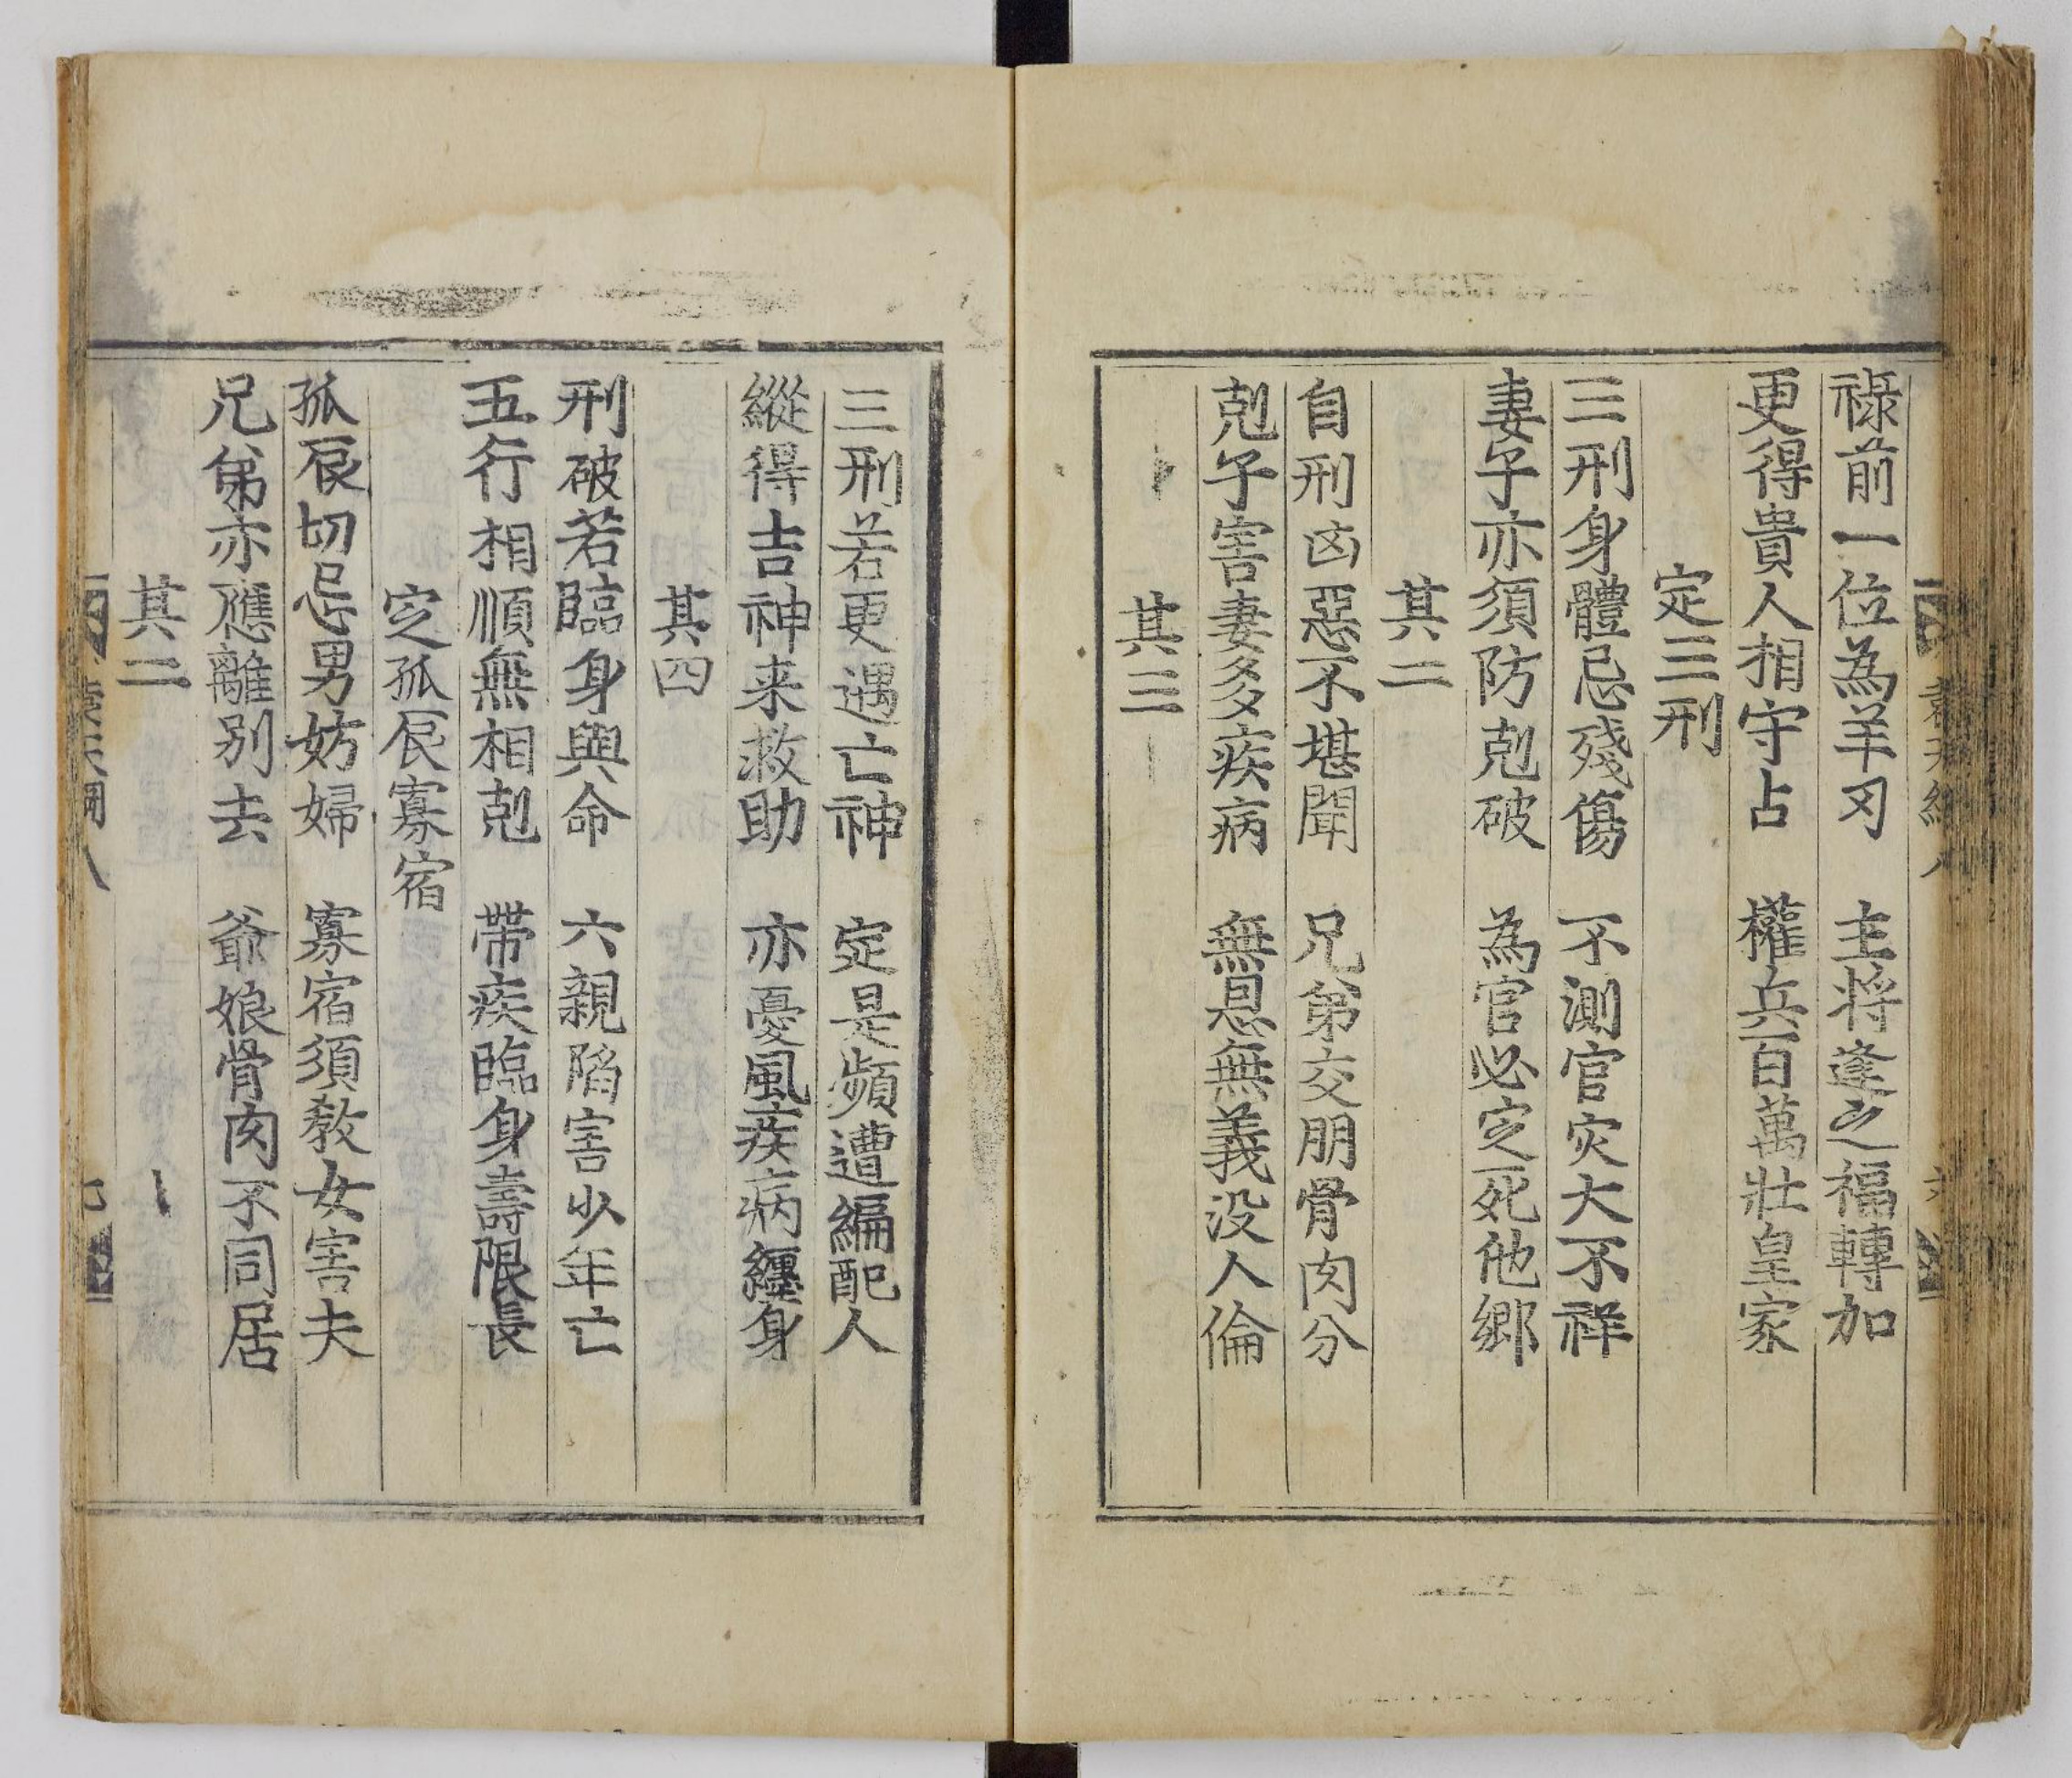 祿前一位為羊刃　主將逢之福轉加
更得貴人相守占　權兵百萬壯皇家
定三刑
三刑身體忌殘傷　不測官灾大不祥
妻子亦須防剋破　為官必定死他鄉
其二
自刑凶惡不堪聞　兄弟交朋骨肉分
剋子害妻多疾病　無恩無義没人倫
其三
三刑若更遇亡神　定是頻遭編配人
縱得吉神来救助　亦憂風疾病纏身
其四
刑破若臨身與命　六親陷害少年亡
五行相順無相剋　帶疾臨身壽限長
定孤辰寡宿
孤辰切忌男妨婦　寡宿須教女害夫
兄弟亦應離別去　爺娘骨肉不同居
其二